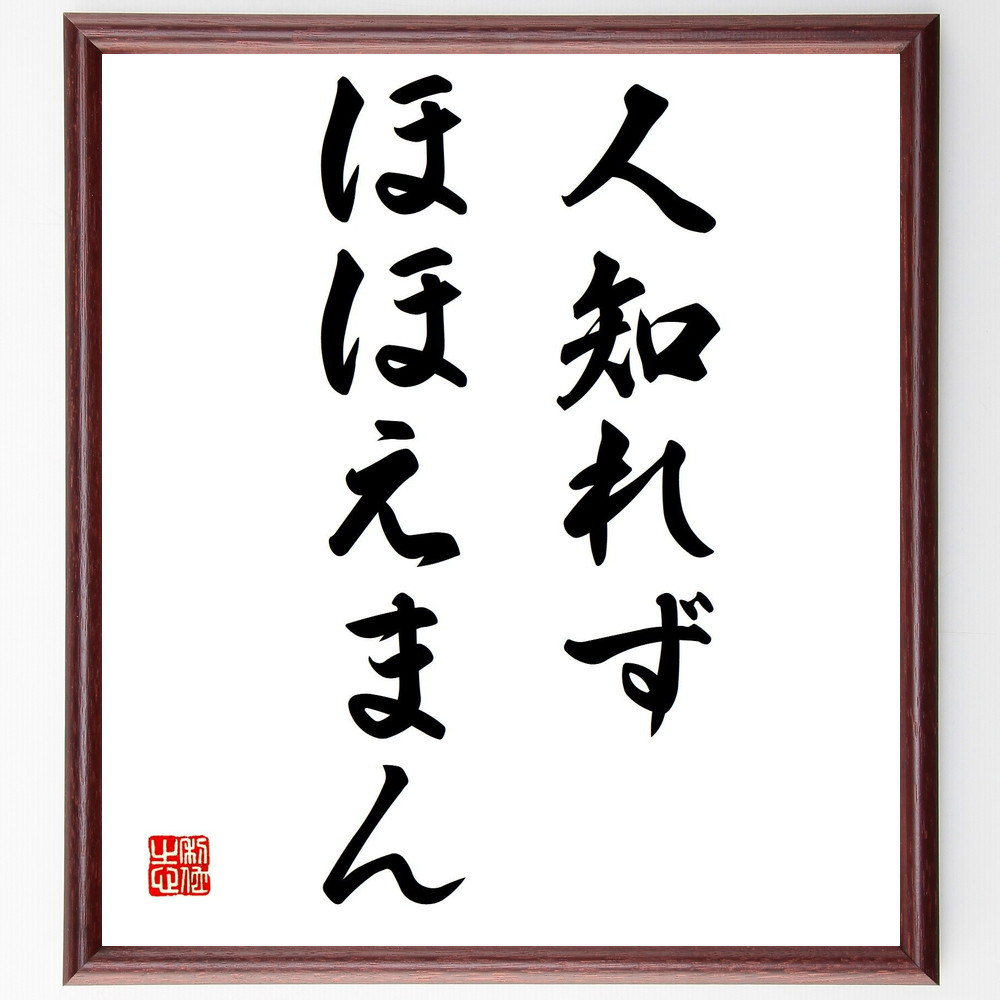 人知れず
ほほえまん